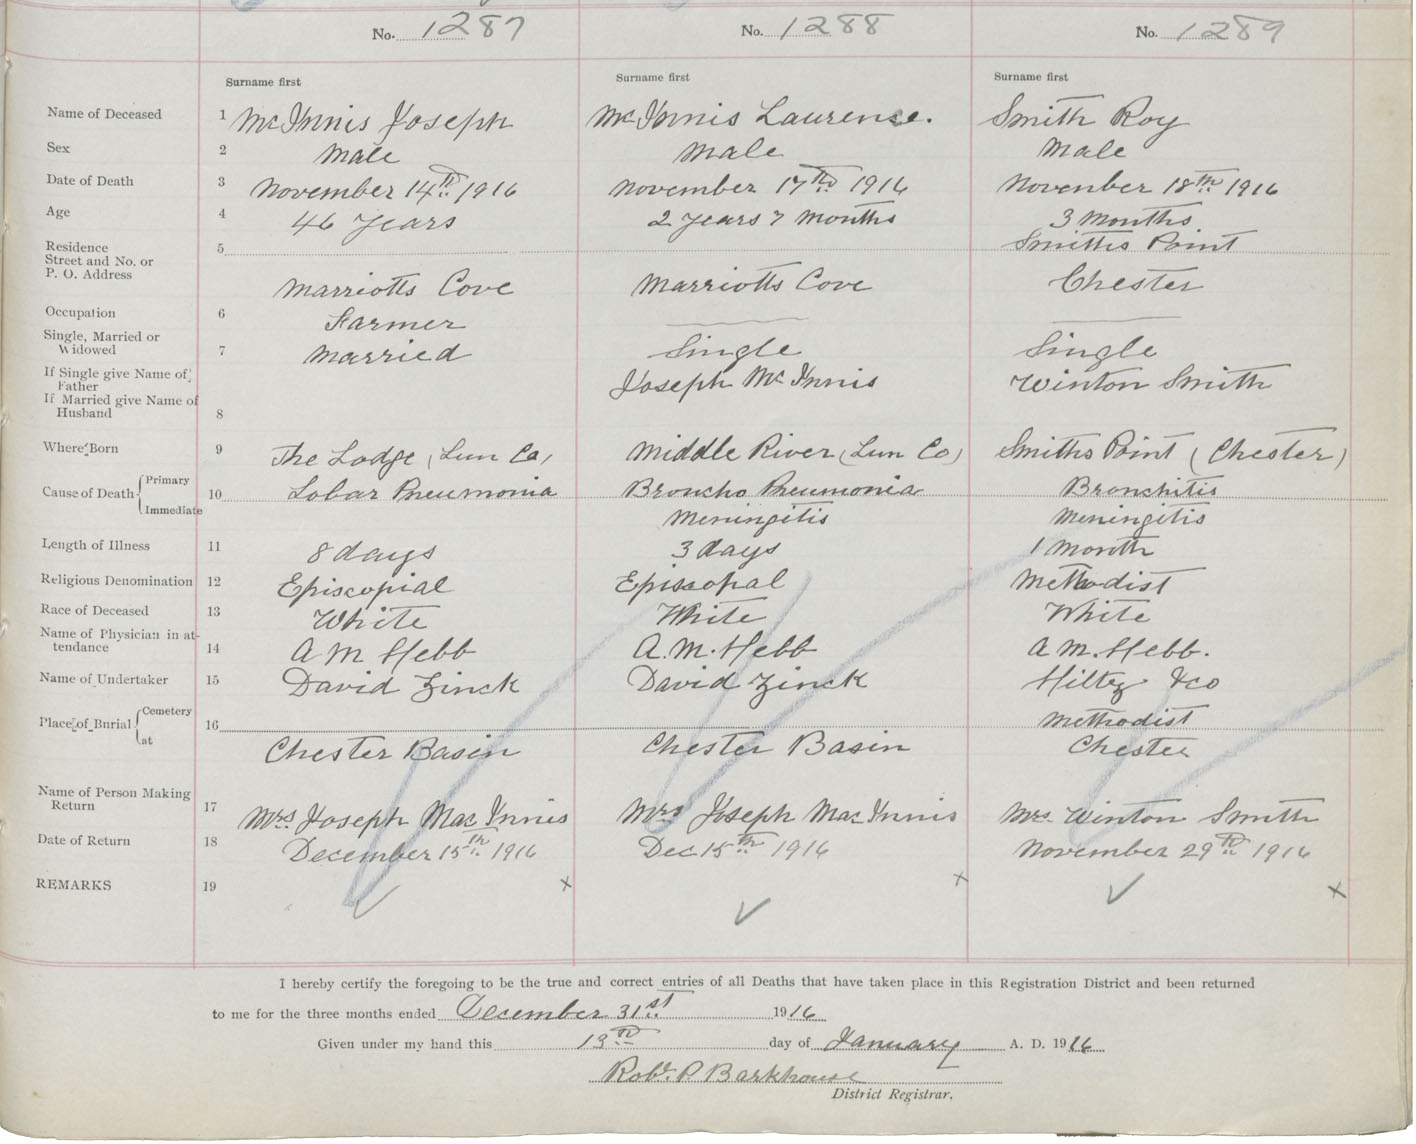 No. 1287 No. 1288 No. 1289
Surname first Surname first Surname first
Name of Deceased 1 McInnis Joseph McInnis Laurence. Smith Roy
Sex 2 Male Male Male
Date of Death 3 November 14th 1916 November 17th 1916 November 18th 1916
Age 4 46 Years 2 Years 7 Months 3 Months
Residence 5 Smiths Point
Street and No. or
P. O. Address Marriotts Cove Marriotts Cove Chester
Occupation 6 Farmer
Single, Married or
Widowed 7 Married Single Single
If Single give Name of
Father Joseph McInnis Winton Smith
If Married give Name of
Husband 8
Where Born 9 The Lodge (Lun Co) Middle River (Lun Co) Smiths Point (Chester)
Cause of Death Primary
10 Lobar Pneumonia Broncho Pneumonia Bronchitis
Immediate Meningitis Meningitis
Length of Illness 11 8 days 3 days 1 month
Religious Denomination 12 Episcopial Episcopal Methodist
Race of Deceased 13 White White White
Name of Physician in at-
tendance 14 A M Hebb A. M. Hebb A M. Hebb.
Name of Undertaker 15 David Zinck David Zinck Hiltz & Co
Place of Burial Cemetery
16 Methodist
at Chester Basin Chester Basin Chester
Name of Person Making
Return 17 Mrs. Joseph MacInnis Mrs Joseph MacInnis Mrs. Winton Smith
Date of Return 18 December 15th 1916 Dec 15th 1916 November 29th 1916
REMARKS 19
I hereby certify the foregoing to be the true and correct entries of all Deaths that have taken place in this Registration District and been returned
to me for the three months ended December 31st 1916
Given under my hand this 13th day of January A. D. 1916
Robt. P. Barkhouse
District Registrar.